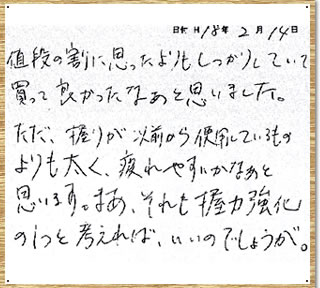 日付 H18年2月14日
値段の割に思ったよりもしっかりしていて
買って良かったなあと思いました。
ただ、握りが以前から使用しているもの
よりも太く、疲れやすいかなあと
思います。まあ、それも握力強化
の1つと考えれば、いいのでしょうが。